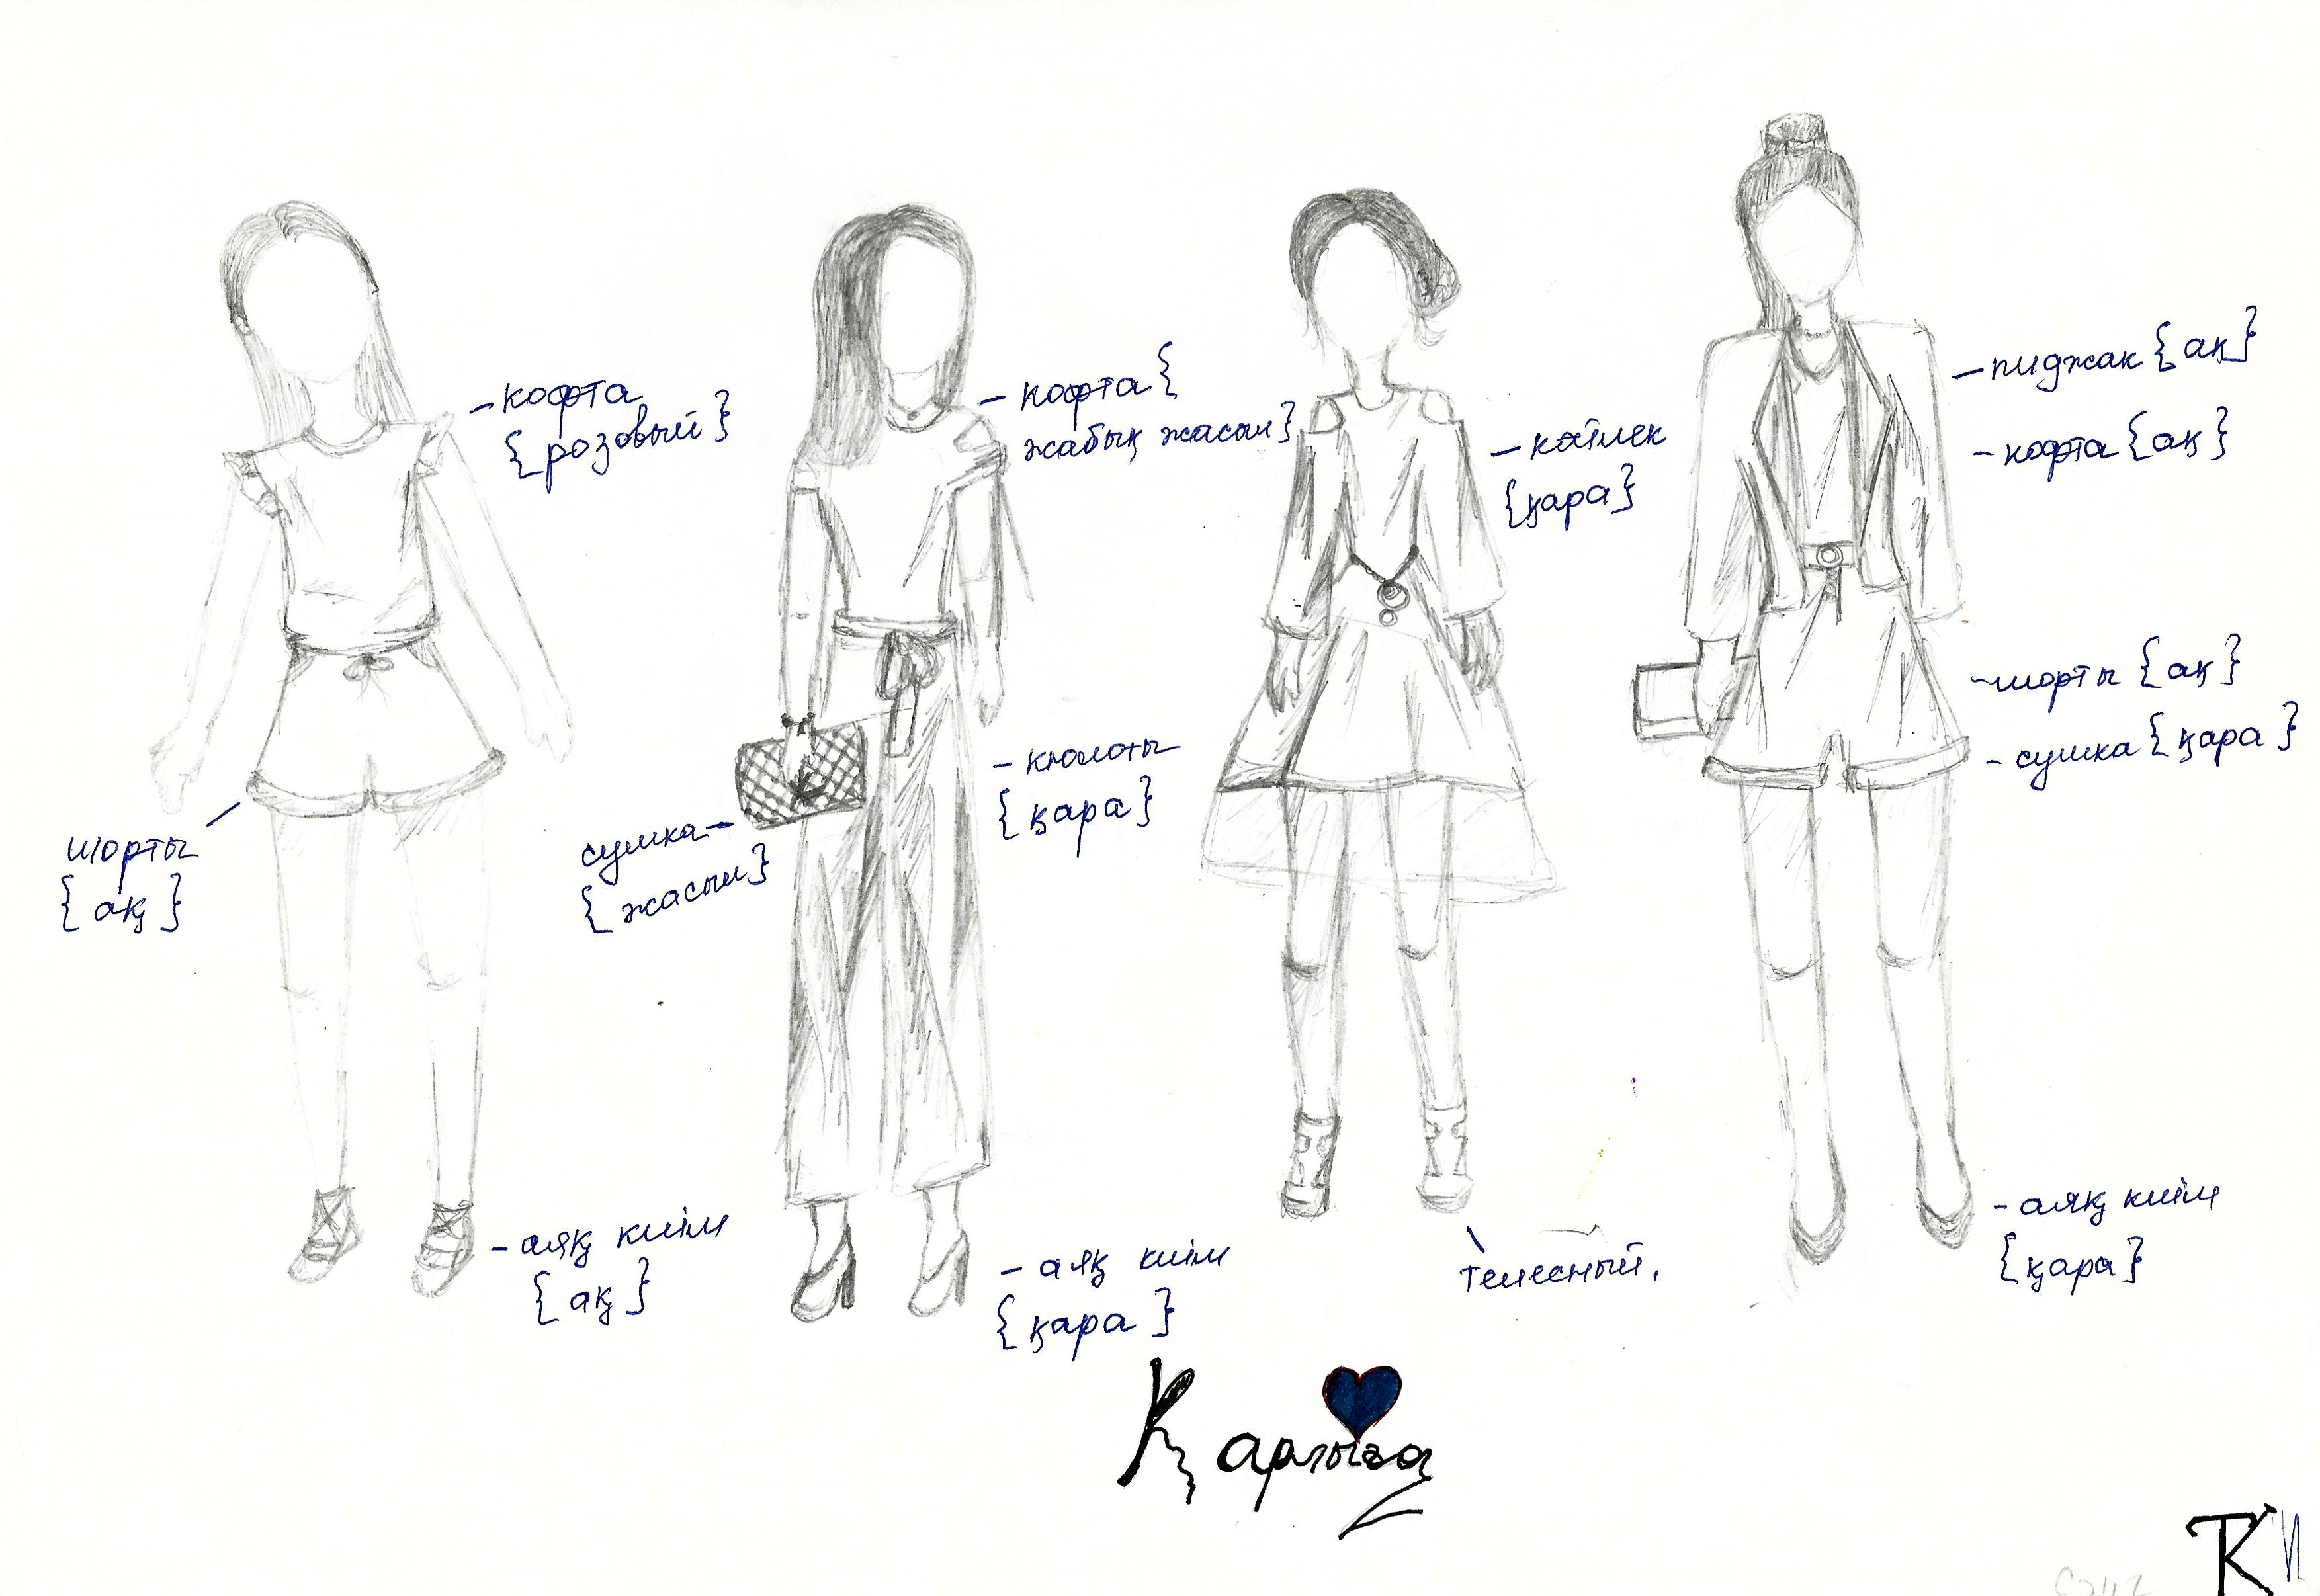 - кофта
{розовый}
шорты
{ақ}
- аяқ киім
{ақ}
- кофта {
жабық жасыл}
сумка -
{жасыл}
- кюлоты
{қара}
- аяқ киім
{қара}
- көйлек
{қара}
телесный.
- пиджак {ақ}
- кофта {ақ}
- шорты {ақ}
- сумка {қара}
- аяқ киім
{қара}
Қарлыға
ТК